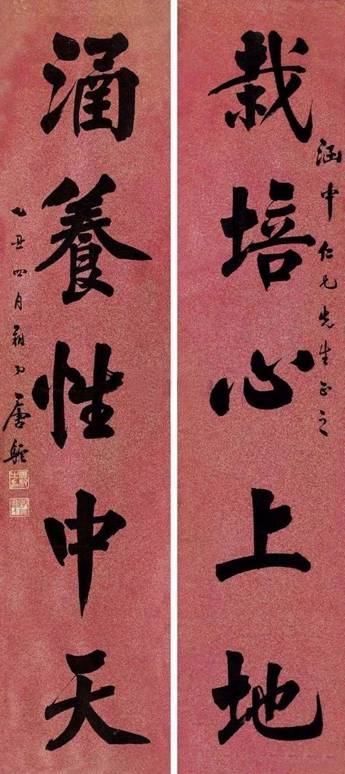 栽培心上地
涵中仁兄先生正之
涵養性中天
乙丑四月
唐駝